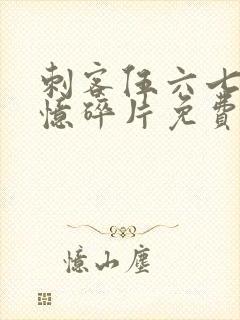 刺客伍六七
憶碎片免費
憶山塵